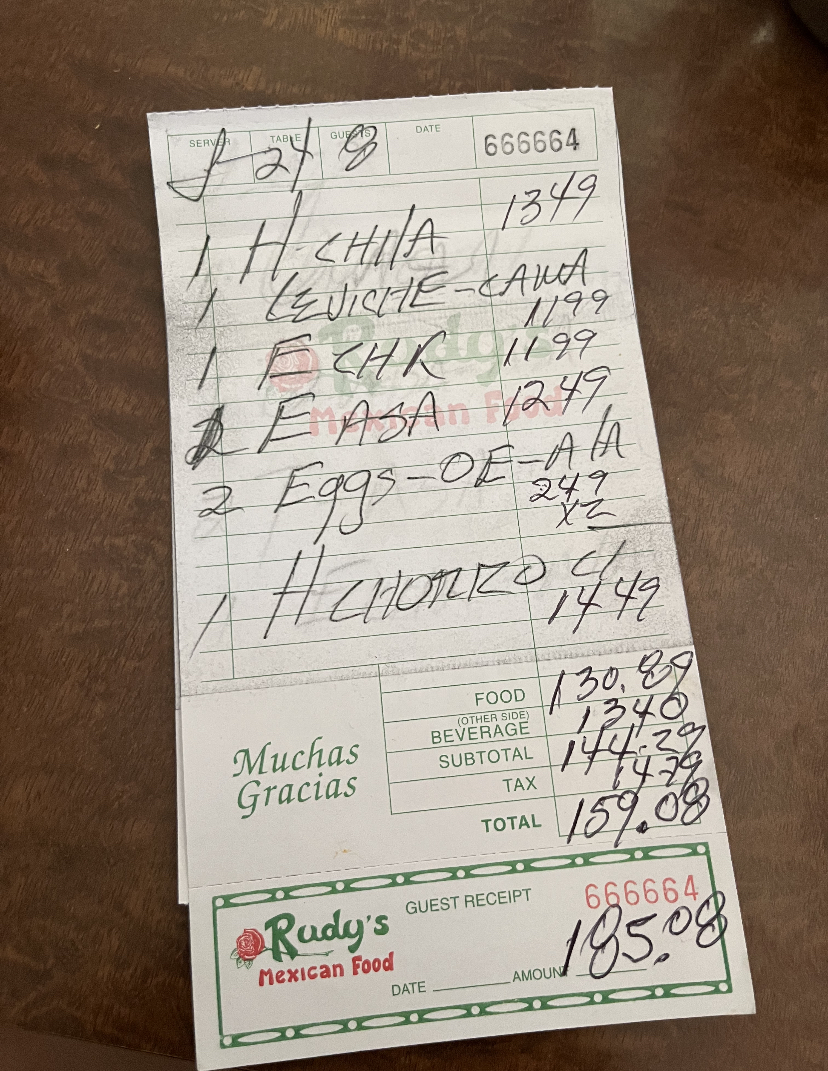 SERVER TABLE GUESTS DATE 666664
J 24 8
1 H-CHILA 1349
1 CEVICHE-CAMA
1199
1 E CHK 1199
1 E ASA 1249
2 Eggs-OE-A/A
249
x2
1 H CHORIZO C/
1449
FOOD 130.89
(OTHER SIDE)
BEVERAGE 1340
SUBTOTAL 144.29
TAX 14.79
TOTAL 159.08
Muchas
Gracias
Rudy's
Mexican Food
GUEST RECEIPT 666664
Rudy's
Mexican Food
DATE AMOUNT 185.08